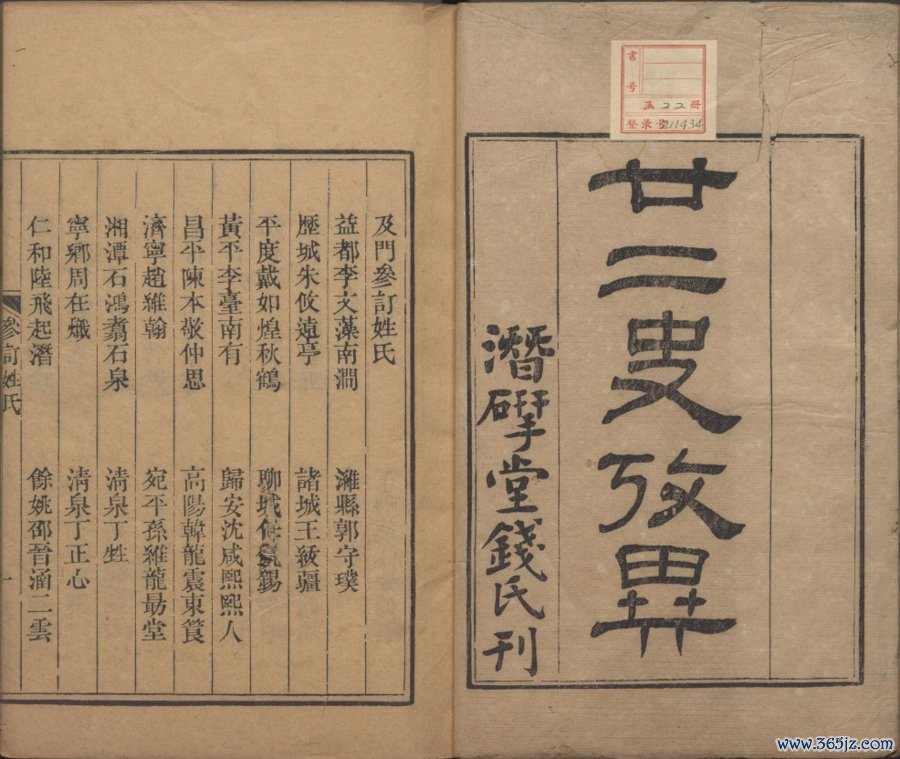 書號
函 22 册
登录号 211434
廿二史攷異
潛揅堂錢氏刊
及門參訂姓氏
益都李文藻南澗 濰縣郭守璞
歷城朱攸遠亭 諸城王紱疆
平度戴如煌秋鶴 聊城
黃平李臺南有 歸安沈咸熙熙人
昌平陳本敬仲思 高陽韓龍震東篔
濟寧趙維翰 宛平孫維龍勗堂
湘潭石鴻翥石泉 清泉丁甡
寧鄉周在熾 清泉丁正心
仁和陸飛起潛 餘姚邵晉涵二雲
參訂姓氏
一
www.365jz.com